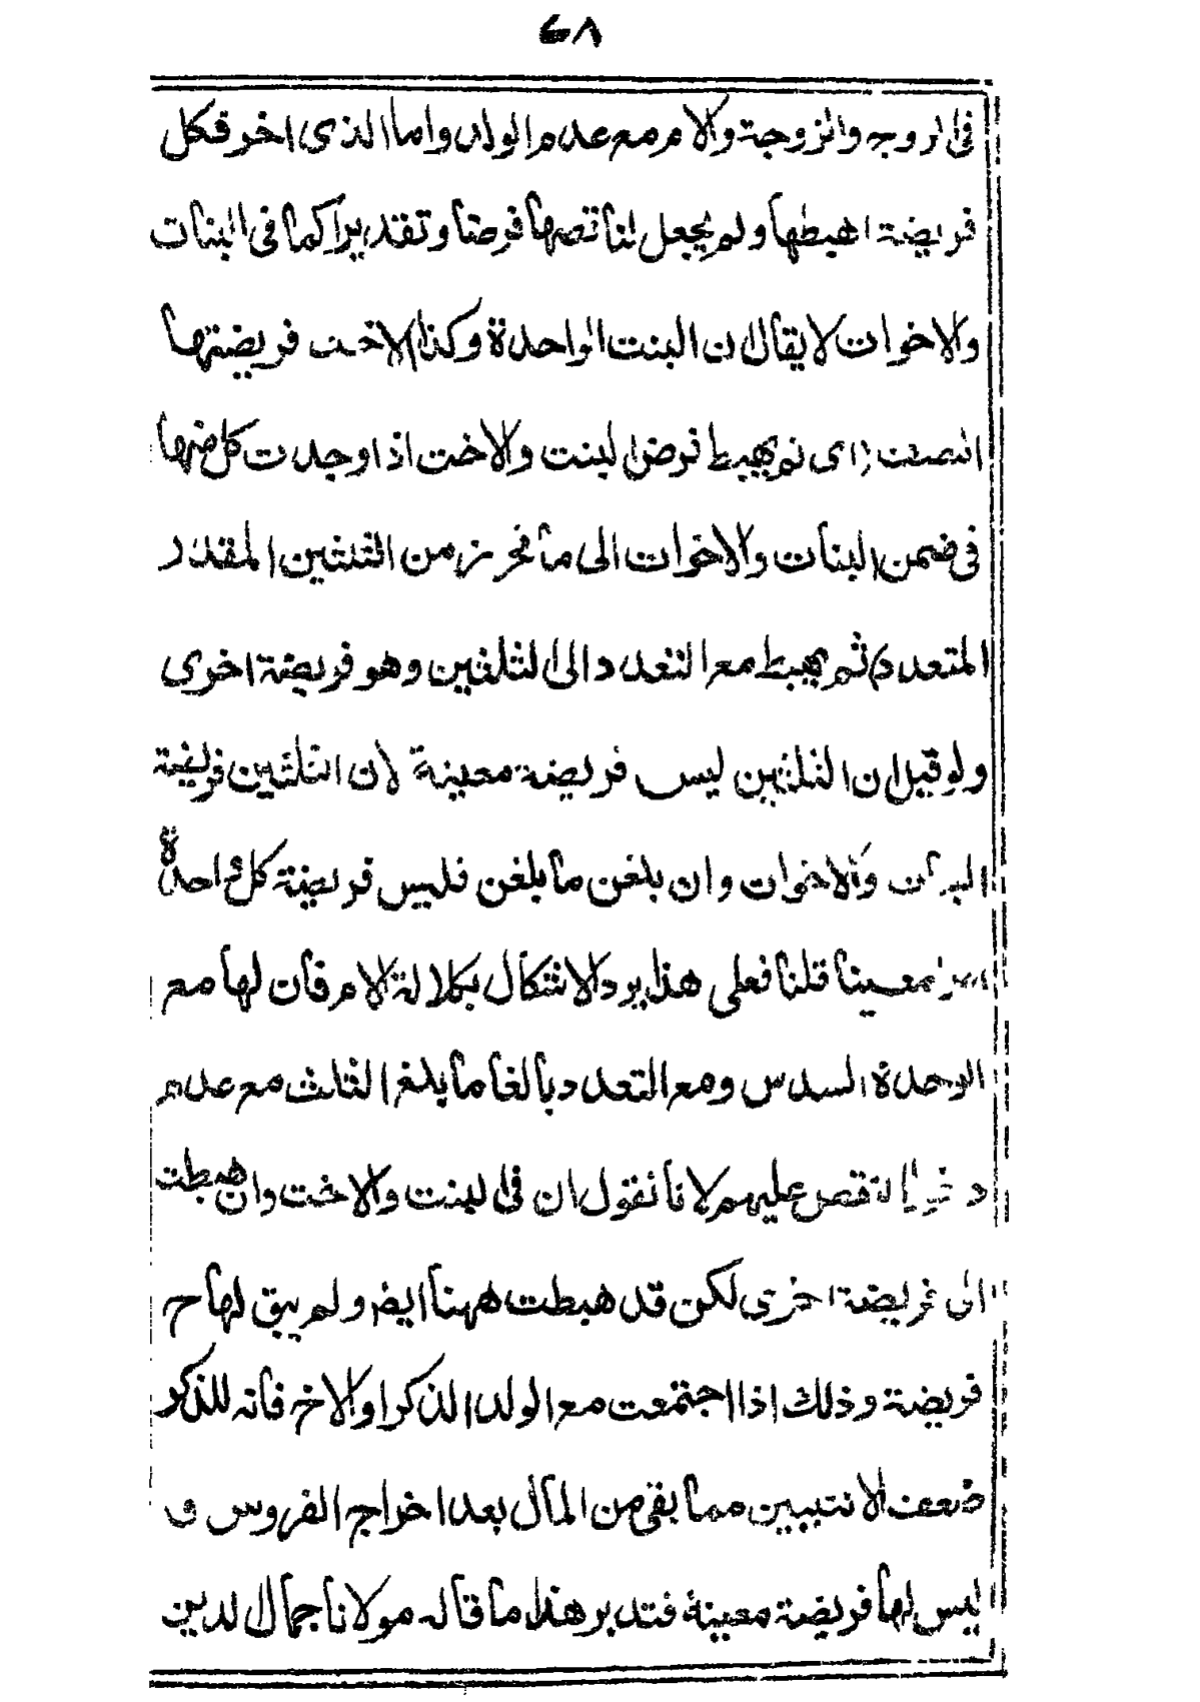 ٦٨
فى الزوج والزوجة والام مع عدم الولد واما الذى اخر فكل
فريضة اهبطها ولم يجعل لنا نقصها فرضا وتقديرا كما فى البنات
والاخوات لا يقال ان البنت الواحدة وكذا الاخت فريضتها
النصف اى ثم يهبط فرض البنت والاخت اذا وجدت كل منها
فى ضمن البنات والاخوات الى ما من الثلثين المقدر
المتعدد ثم يهبط مع التعدد الى الثلثين وهو فريضة اخرى
ولو قيل ان الثلثين ليس فريضة معينة لان الثلثين فريضة
البنات والاخوات وان بلغن ما بلغن فليس فريضة كل واحدة
معينا قلنا فعلى هذا يرد الاشكال بكلالة الام فان لها مع
الوحدة السدس ومع التعدد بالغا ما يلغ الثلث مع عدم
دخول النقص عليهم لانا نقول ان فى البنت والاخت وان هبطت
الى فريضة اخرى لكن قد هبطت ههنا ايضا ولم يبق لها ح
فريضة وذلك اذا اجتمعت مع الولد الذكر او الاخ فانه للذكر
ضعف الانثيين مما بقى من المال بعد اخراج الفروض و
ليس لها فريضة معينة فتدبر هذا ما قاله مولانا جمال الدين